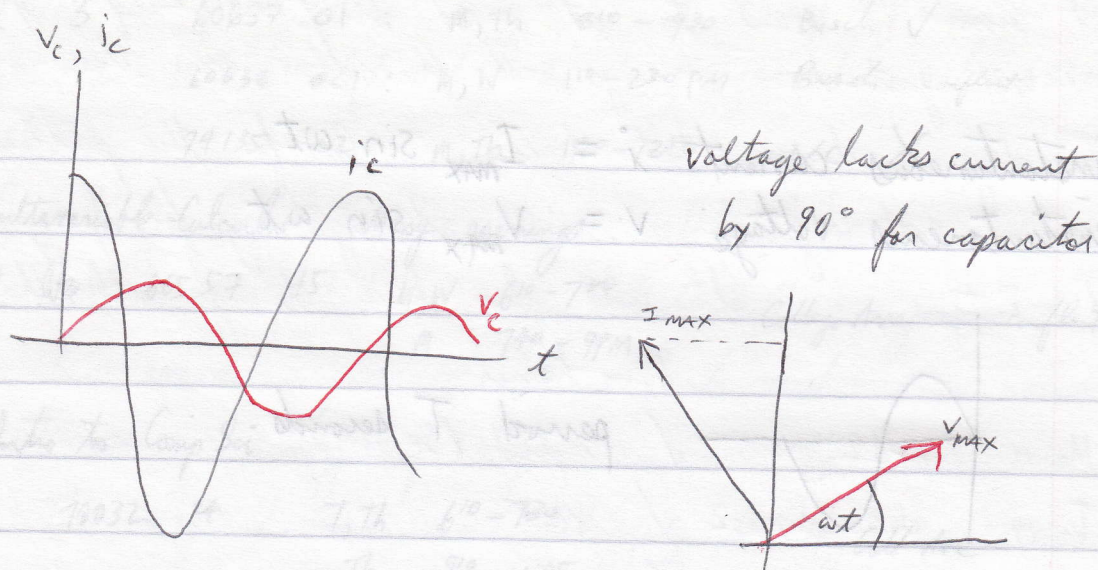 Vc, ic
ic
Voltage lacks current
by 90° for capacitor
Vc
t
I MAX
V MAX
ωt